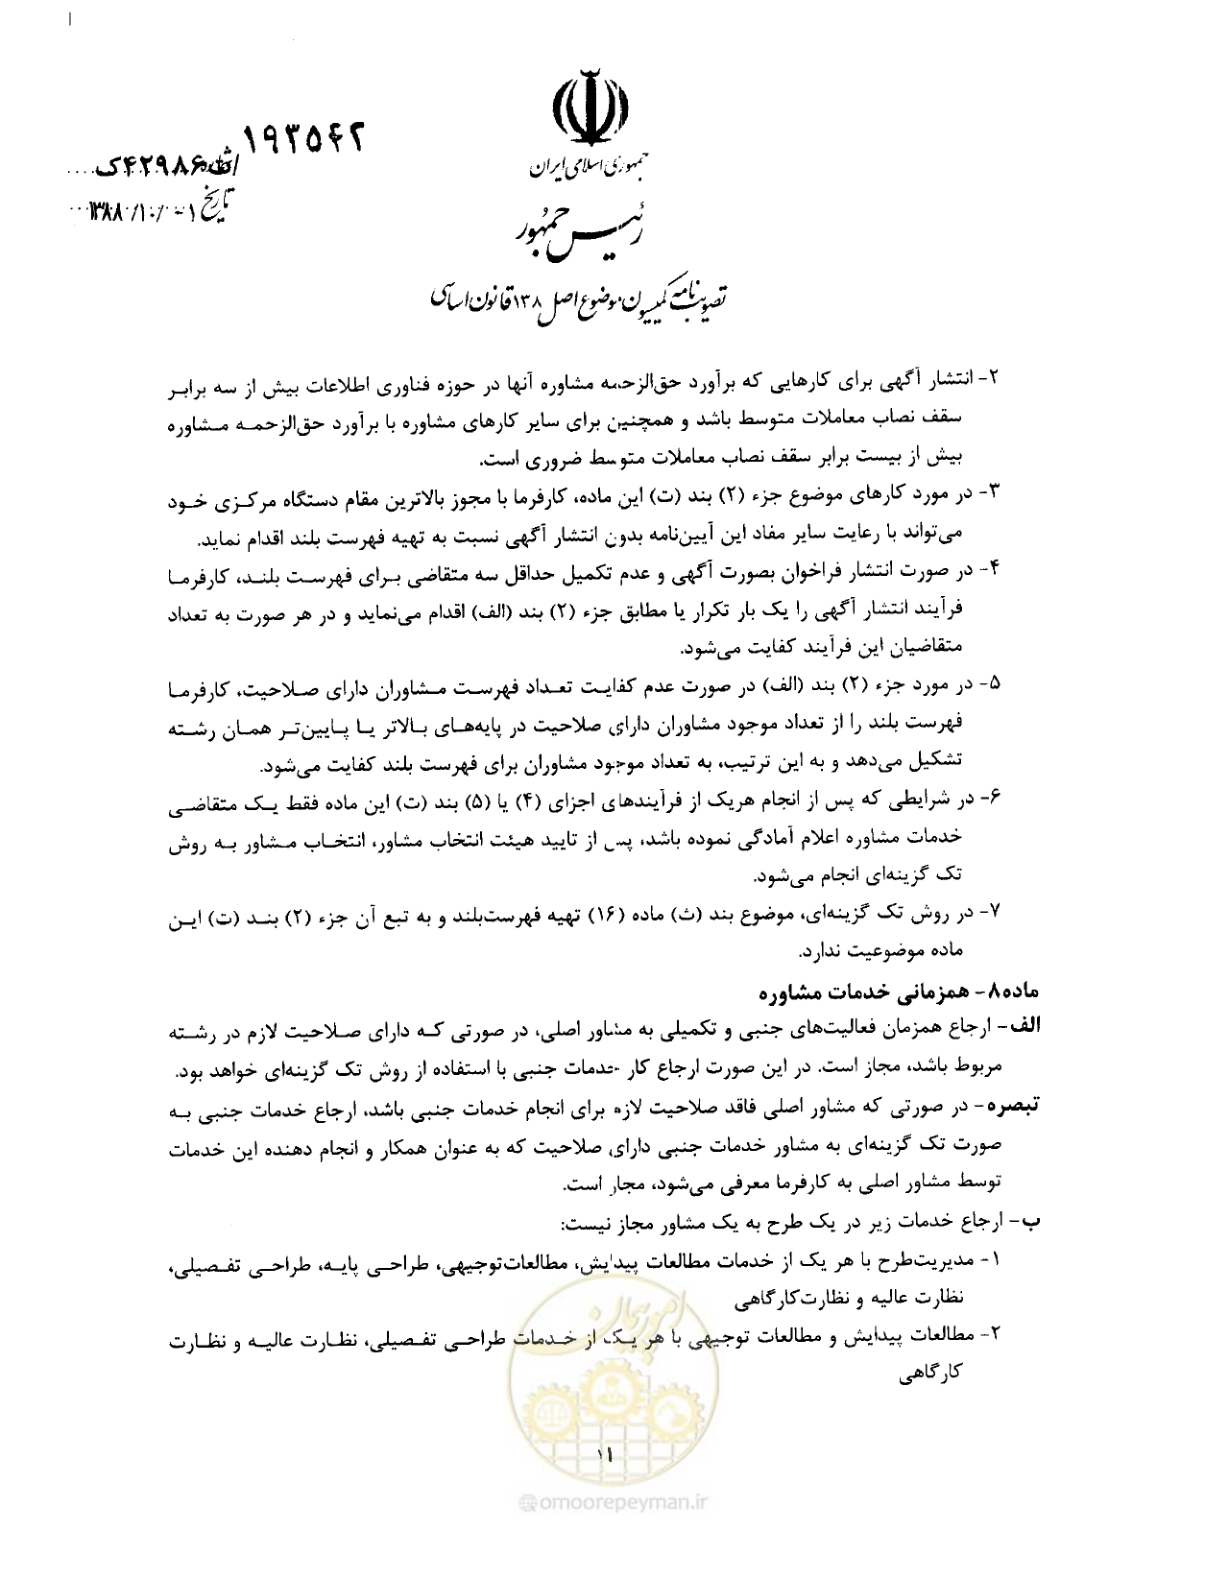 ۱۹۳۵۴۲
۴۲۹۸۶ک
تاریخ ۱۳۸۸/۱۰/۰۱
جمهوری اسلامی ایران
رئیس جمهور
تصویب‌نامه کمیسیون موضوع اصل ۱۳۸ قانون اساسی
۲- انتشار آگهی برای کارهایی که برآورد حق‌الزحمه مشاوره آنها در حوزه فناوری اطلاعات بیش از سه برابر
سقف نصاب معاملات متوسط باشد و همچنین برای سایر کارهای مشاوره با برآورد حق‌الزحمه مشاوره
بیش از بیست برابر سقف نصاب معاملات متوسط ضروری است.
۳- در مورد کارهای موضوع جزء (۲) بند (ت) این ماده، کارفرما با مجوز بالاترین مقام دستگاه مرکزی خود
می‌تواند با رعایت سایر مفاد این آیین‌نامه بدون انتشار آگهی نسبت به تهیه فهرست بلند اقدام نماید.
۴- در صورت انتشار فراخوان بصورت آگهی و عدم تکمیل حداقل سه متقاضی برای فهرست بلند، کارفرما
فرآیند انتشار آگهی را یک بار تکرار یا مطابق جزء (۲) بند (الف) اقدام می‌نماید و در هر صورت به تعداد
متقاضیان این فرآیند کفایت می‌شود.
۵- در مورد جزء (۲) بند (الف) در صورت عدم کفایت تعداد فهرست مشاوران دارای صلاحیت، کارفرما
فهرست بلند را از تعداد موجود مشاوران دارای صلاحیت در پایه‌های بالاتر یا پایین‌تر همان رشته
تشکیل می‌دهد و به این ترتیب، به تعداد موجود مشاوران برای فهرست بلند کفایت می‌شود.
۶- در شرایطی که پس از انجام هریک از فرآیندهای اجزای (۴) یا (۵) بند (ت) این ماده فقط یک متقاضی
خدمات مشاوره اعلام آمادگی نموده باشد، پس از تایید هیئت انتخاب مشاور، انتخاب مشاور به روش
تک گزینه‌ای انجام می‌شود.
۷- در روش تک گزینه‌ای، موضوع بند (ث) ماده (۱۶) تهیه فهرست‌بلند و به تبع آن جزء (۲) بند (ت) این
ماده موضوعیت ندارد.
ماده۸- همزمانی خدمات مشاوره
الف- ارجاع همزمان فعالیت‌های جنبی و تکمیلی به مشاور اصلی، در صورتی که دارای صلاحیت لازم در رشته
مربوط باشد، مجاز است. در این صورت ارجاع کار خدمات جنبی با استفاده از روش تک گزینه‌ای خواهد بود.
تبصره- در صورتی که مشاور اصلی فاقد صلاحیت لازم برای انجام خدمات جنبی باشد، ارجاع خدمات جنبی به
صورت تک گزینه‌ای به مشاور خدمات جنبی دارای صلاحیت که به عنوان همکار و انجام دهنده این خدمات
توسط مشاور اصلی به کارفرما معرفی می‌شود، مجاز است.
ب- ارجاع خدمات زیر در یک طرح به یک مشاور مجاز نیست:
۱- مدیریت‌طرح با هر یک از خدمات مطالعات پیدایش، مطالعات‌توجیهی، طراحی پایه، طراحی تفصیلی،
نظارت عالیه و نظارت‌کارگاهی
۲- مطالعات پیدایش و مطالعات توجیهی با هر یک از خدمات طراحی تفصیلی، نظارت عالیه و نظارت
کارگاهی
امور پیمان
۱۱
@omoorepeyman.ir